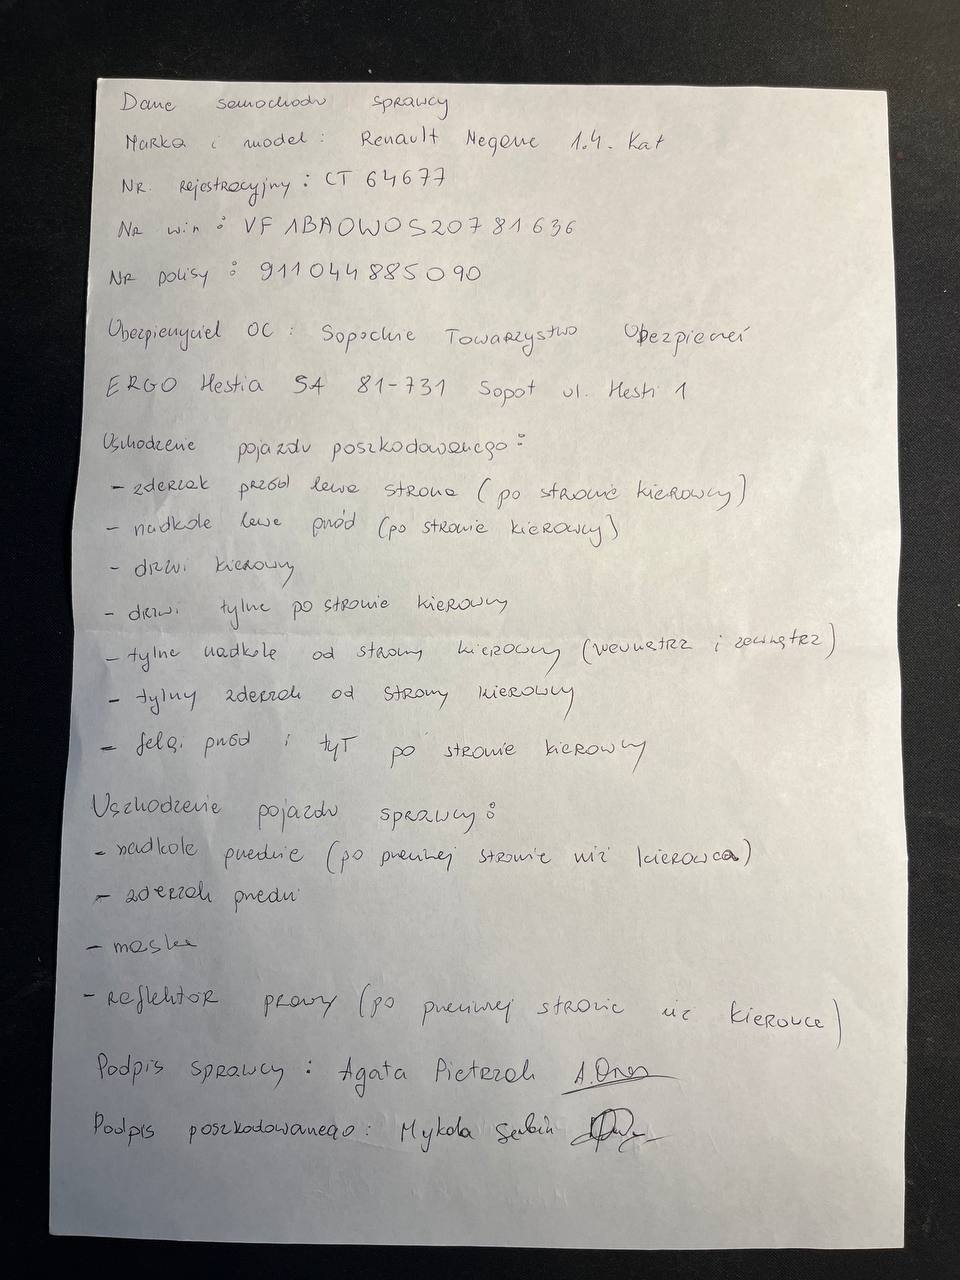 Dane samochodu sprawcy
Marka i model: Renault Megane 1.4. Kat
NR. rejestracyjny: CT 64677
NR win: VF 1BA0W0S20781636
NR polisy: 911044885090
Ubezpieczyciel OC: Sopockie Towarzystwo Ubezpieczeń
ERGO Hestia SA 81-731 Sopot ul. Hesti 1
Uszkodzenie pojazdu poszkodowanego:
- zderzak przód lewa strona (po stronie kierowcy)
- nadkole lewe przód (po stronie kierowcy)
- drzwi kierowcy
- drzwi tylne po stronie kierowcy
- tylne nadkole od strony kierowcy (wewnątrz i zewnątrz)
- tylny zderzak od strony kierowcy
- felgi przód i tył po stronie kierowcy
Uszkodzenie pojazdu sprawcy:
- nadkole przednie (po przeciwnej stronie niż kierowca)
- zderzak przedni
- maska
- reflektor prawy (po przeciwnej stronie niż kierowca)
Podpis sprawcy: Agata Pietrzak
Podpis poszkodowanego: Mykola Serbin